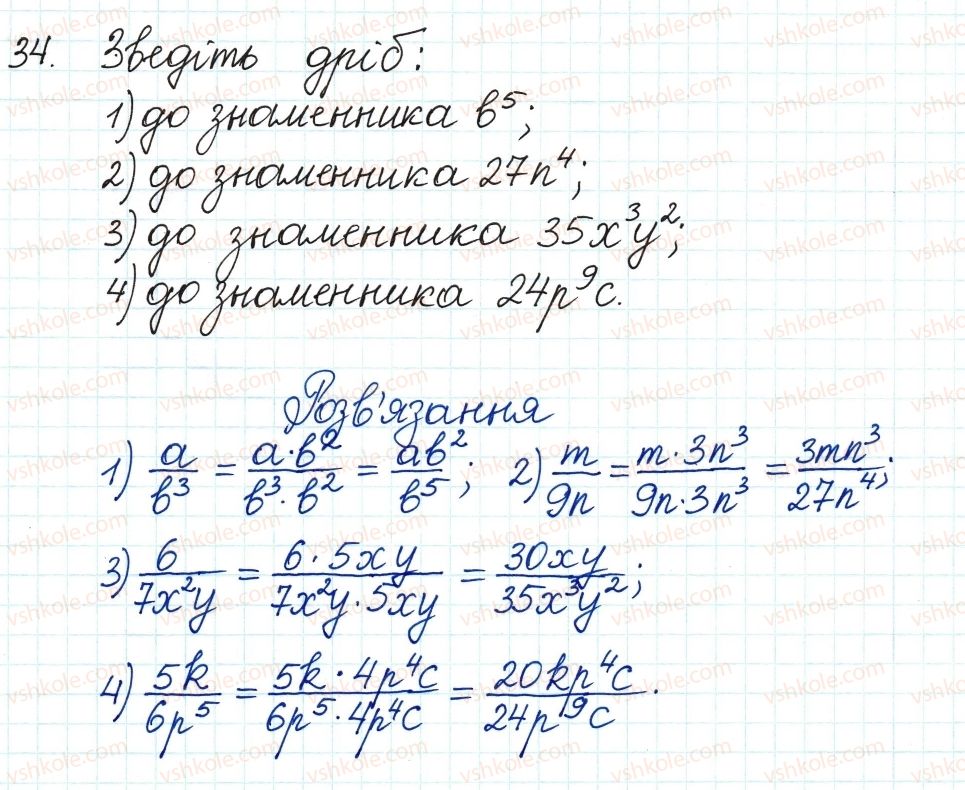 34. Зведіть дріб:
1) до знаменника b⁵;
2) до знаменника 27n⁴;
3) до знаменника 35x³y²;
4) до знаменника 24p⁹c.
Розв'язання
1) a/b³ = a·b²/b³·b² = ab²/b⁵; 2) m/9n = m·3n³/9n·3n³ = 3mn³/27n⁴;
3) 6/7x²y = 6·5xy/7x²y·5xy = 30xy/35x³y²;
4) 5k/6p⁵ = 5k·4p⁴c/6p⁵·4p⁴c = 20kp⁴c/24p⁹c.